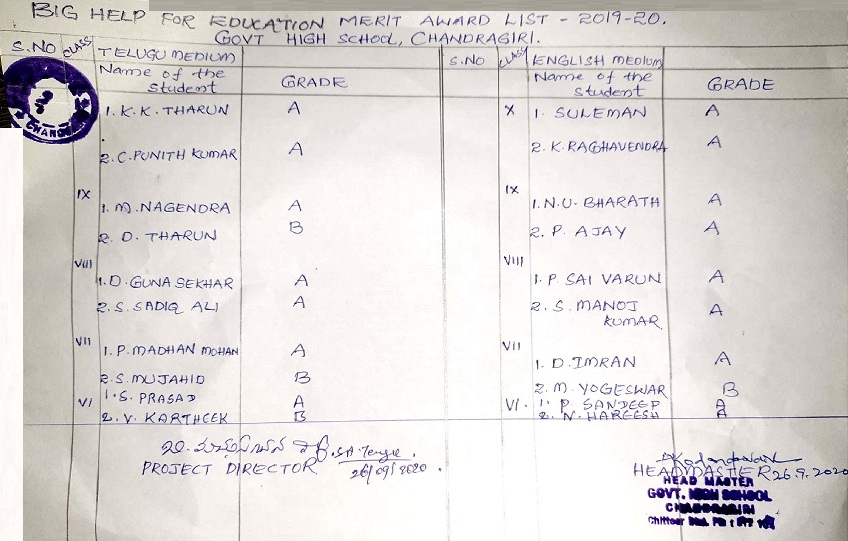 BIG HELP FOR EDUCATION MERIT AWARD LIST - 2019-20.
GOVT HIGH SCHOOL, CHANDRAGIRI.
S.NO CLASS TELUGU MEDIUM
Name of the Student GRADE
1. K.K. THARUN A
2. C. PUNITH KUMAR A
IX
1. M. NAGENDRA A
2. D. THARUN B
VIII
1. D. GUNA SEKHAR A
2. S. SADIQ ALI A
VII
1. P. MADHAN MOHAN A
2. S. MUJAHID B
VI 1. S. PRASAD A
2. V. KARTHEEK B
S.NO CLASS ENGLISH MEDIUM
Name of the Student GRADE
X 1. SULEMAN A
2. K. RAGHAVENDRA A
IX
1. N.U. BHARATH A
2. P. AJAY A
VIII
1. P. SAI VARUN A
2. S. MANOJ KUMAR A
VII
1. D. IMRAN A
2. M. YOGESWAR B
VI. 1. P. SANDEEP A
2. N. HAREESH A
PROJECT DIRECTOR 26/09/2020.
HEADMASTER 26.9.2020
HEAD MASTER
GOVT. HIGH SCHOOL
CHANDRAGIRI
Chittoor